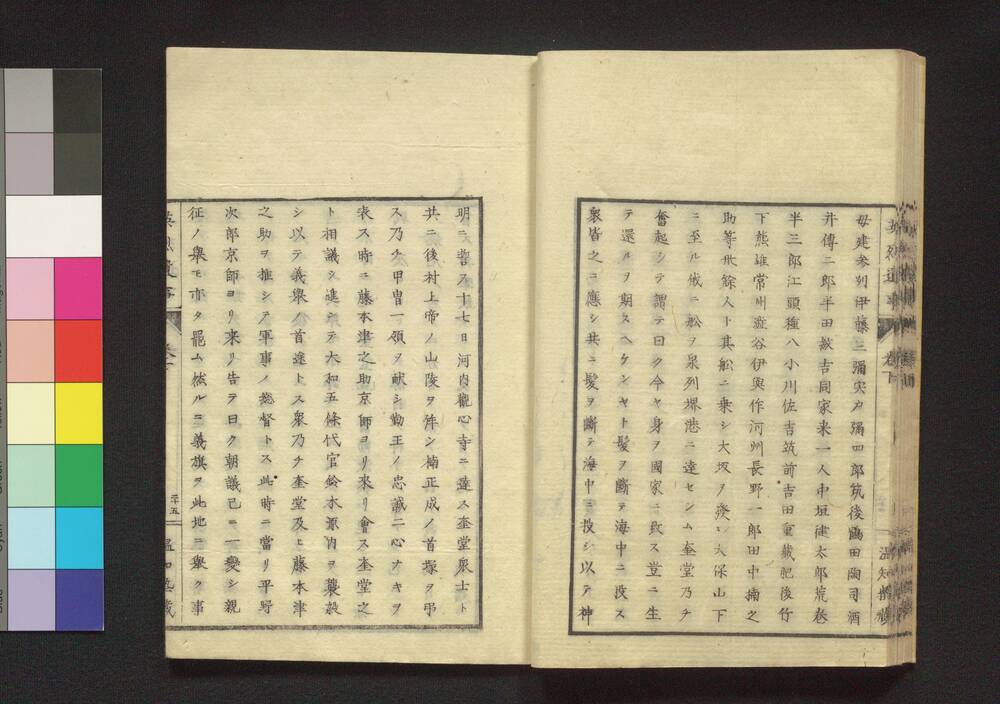 毋建參列伊藤三彌宍戸彌四郎筑後鶴田陶司酒
井傳二郎半田紋吉同家来一人中垣健太郎荒巻
半三郎江頭種八小川佐吉筑前吉田重藏肥後竹
下熊雄常州澁谷伊與作河州長野一郎田中楠之
助等卅餘人ト其舩ニ乗シ大坂ヲ發シ天保山下
ニ至ル俄ニ舩ヲ泉列堺港ニ達セシム奎堂乃チ
奮起シテ謂テ曰ク今ヤ身ヲ國家ニ致ス豈ニ生
テ還ルヲ期スヘケンヤト髪ヲ斷テ海中ニ投ス
衆皆之ニ應シ共ニ髪ヲ斷テ海中ニ投シ以テ神
明ニ誓ス十七日河内觀心寺ニ達ス奎堂衆士ト
共ニ後村上帝ノ山陵ヲ拜シ楠正成ノ首塚ヲ弔
ス乃チ甲冑一領ヲ献シ勤王ノ忠誠二心ナキヲ
表ス時ニ藤本津之助京師ヨリ來リ會ス奎堂之
ト相議シ進シテ大和五條代官鈴木源内ヲ襲殺
シ以テ義擧ノ首途トス衆乃チ奎堂及ヒ藤本津
之助ヲ推シテ軍事ノ總督トス此時ニ當リ平野
次郎京師ヨリ来リ告テ曰ク朝議已ニ一變シ親
征ノ擧モ亦タ罷ム然ルニ義旗ヲ此地ニ擧ク事
二十五